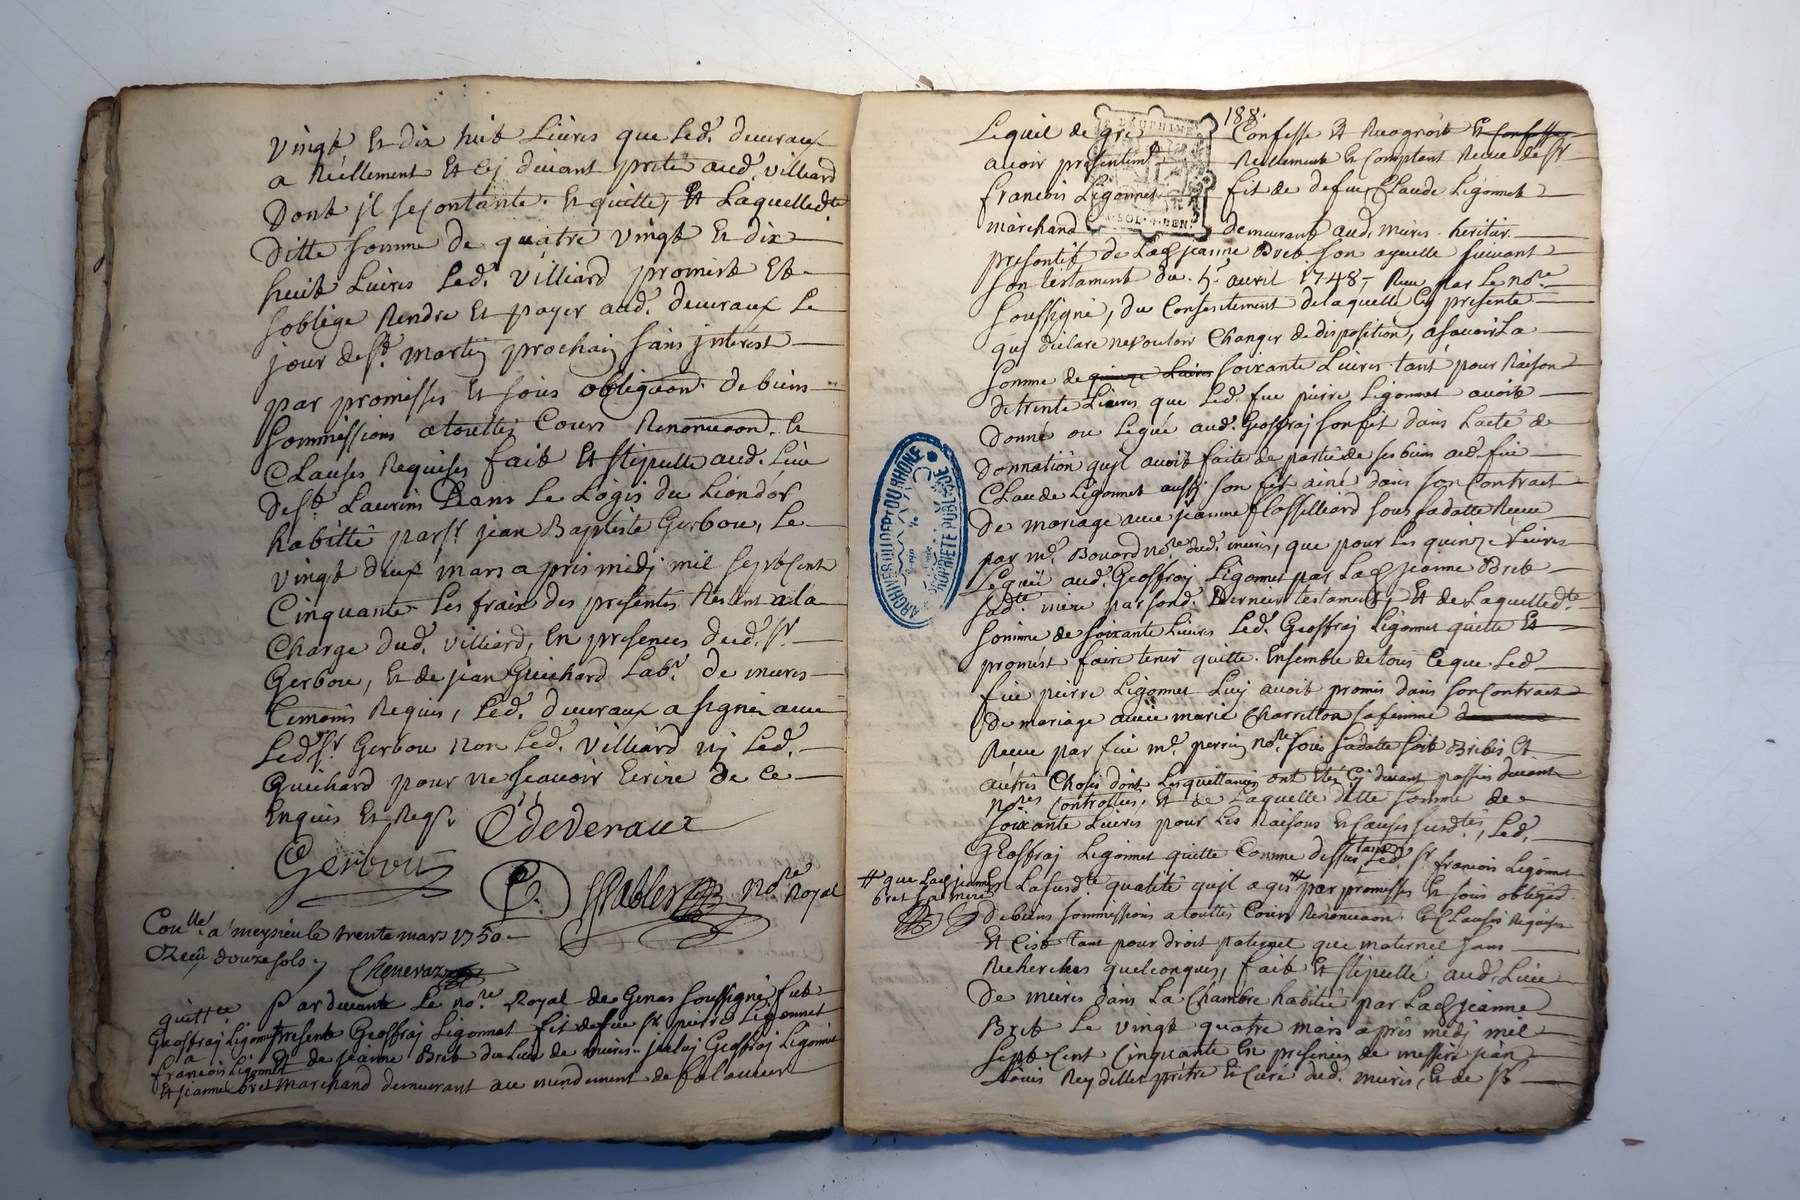 vingt Et dix huit Livres que Led. deveraux
a Réellement Et Cy devant preté aud. villiard
Dont jl se contante. Et quitte, Et Laquelled.te
Ditte somme de quatre vingt Et dix
huit Livres Led. villiard promest Et
soblige Rendre Et payer aud. deveraux Le
jour de St. martin prochain sans jnterest
par promesses Et sous obligaon. de biens
sommissions a touttes Cours Renonciaon. Et
Clauses Requises fait Et stipullé aud. Lieu
de St. Laurens Dans Le Logis du Liondor
habitté par Sr. jean Baptiste Gerbou, Le
vingt deux mars apres midy mil sept cent
Cinquante. Les fraix des presentes Restent a la
Charge dud. villiard, En presences dud. Sr.
Gerbou, Et de jean Guichard Labr. de mures
Temoins Requis, Led. deveraux a signé avec
Led. Sr. Gerbou non Led. villiard ny Led.
Guichard pour ne scavoir Ecrire de Ce
Enquis Et Reqs.
C deveraux
Gerbou
no.re Royal
Con.llé a meysieu le trente mars 1750
Receu douze sols
Chenevaz
quitt.ce
Geoffray Ligonnet
a
francois Ligonnet
Et jeanne bret
Par devant Le no.re Royal de Genas soussigné fut
present Geoffray Ligonnet fils de feu Sr. pierre Ligonnet
Et de jeanne Bret du Lieu de mures. Geoffray Ligonnet
marchand demeurant au mendement de
188.
DAUPHINE
Lequel de gré Confesse Et Recognoit Et Confesse
avoir presentem.t Reellement Et Comptant Receu de Sr.
francois Ligonnet fils de defeu Claude Ligonnet
marchand demeurant aud. mures heritier
presontif de Lad. jeanne Bret son ayeulle suivant
son testament du 5. avril 1748, Receu par Le no.re
soussigné, du Consentement de laquelle Cy presente
qui déclare ne vouloir Changer de disposition, a savoir La
somme de quinze Livres soixante Livres tant pour Raison
de trente Livres que Led. feu pierre Ligonnet avoit
Donné ou Legué aud. Geoffray son fils dans Lacte de
Donnation quil avoit faite de partie de ses biens aud. feu
Claude Ligonnet aussy son fils ainé dans son Contract
De mariage avec jeanne sous sa datte Receu
par me. Bouard no.re dud. mures, que pour Les quinze Livres
Legués aud. Geoffray Ligonnet par Lad. jeanne Bret
sad.te mere par sond. Dernier testament, Et de Laquelled.te
somme de soixante Livres Led. Geoffray Ligonnet quitte Et
promest faire tenir quitte. Ensemble de tous Ce que Led.
feu pierre Ligonnet Luy avoit promis dans son Contract
De mariage avec marie Charretton sa femme
Receu par feu me. perrin no.re sous sa datte soit Brebis Et
autres Choses dont Les quittances ont Etés Cy devant passées devant
no.res Controllées, Et de Laquelle ditte somme de
soixante Livres pour Les Raisons Et Causes susd.tes, Led.
Geoffray Ligonnet quitte Comme dessus tant Led. Sr. francois Ligonnet
# que Lad. jeanne
bret sa mere
En La susd.te qualité quil agis # par promesses Et sous obligaon.
de biens sommissions a touttes Cours Renonciaon. Et Clauses Requises
Et Cest tant pour droit paternel que maternel sans
Recherches quelconques, fait Et stipullé aud. Lieu
De mures dans La Chambre habitée par Lad. jeanne
Bret Le vingt quatre mars apres midy mil
sept Cent Cinquante En presences de messire jean
Louis Rey prêtre Et Curé dud. mures, Et de Sr.
ARCHIVES DU DEPT DU RHONE
PROPRIETE PUBLIQUE